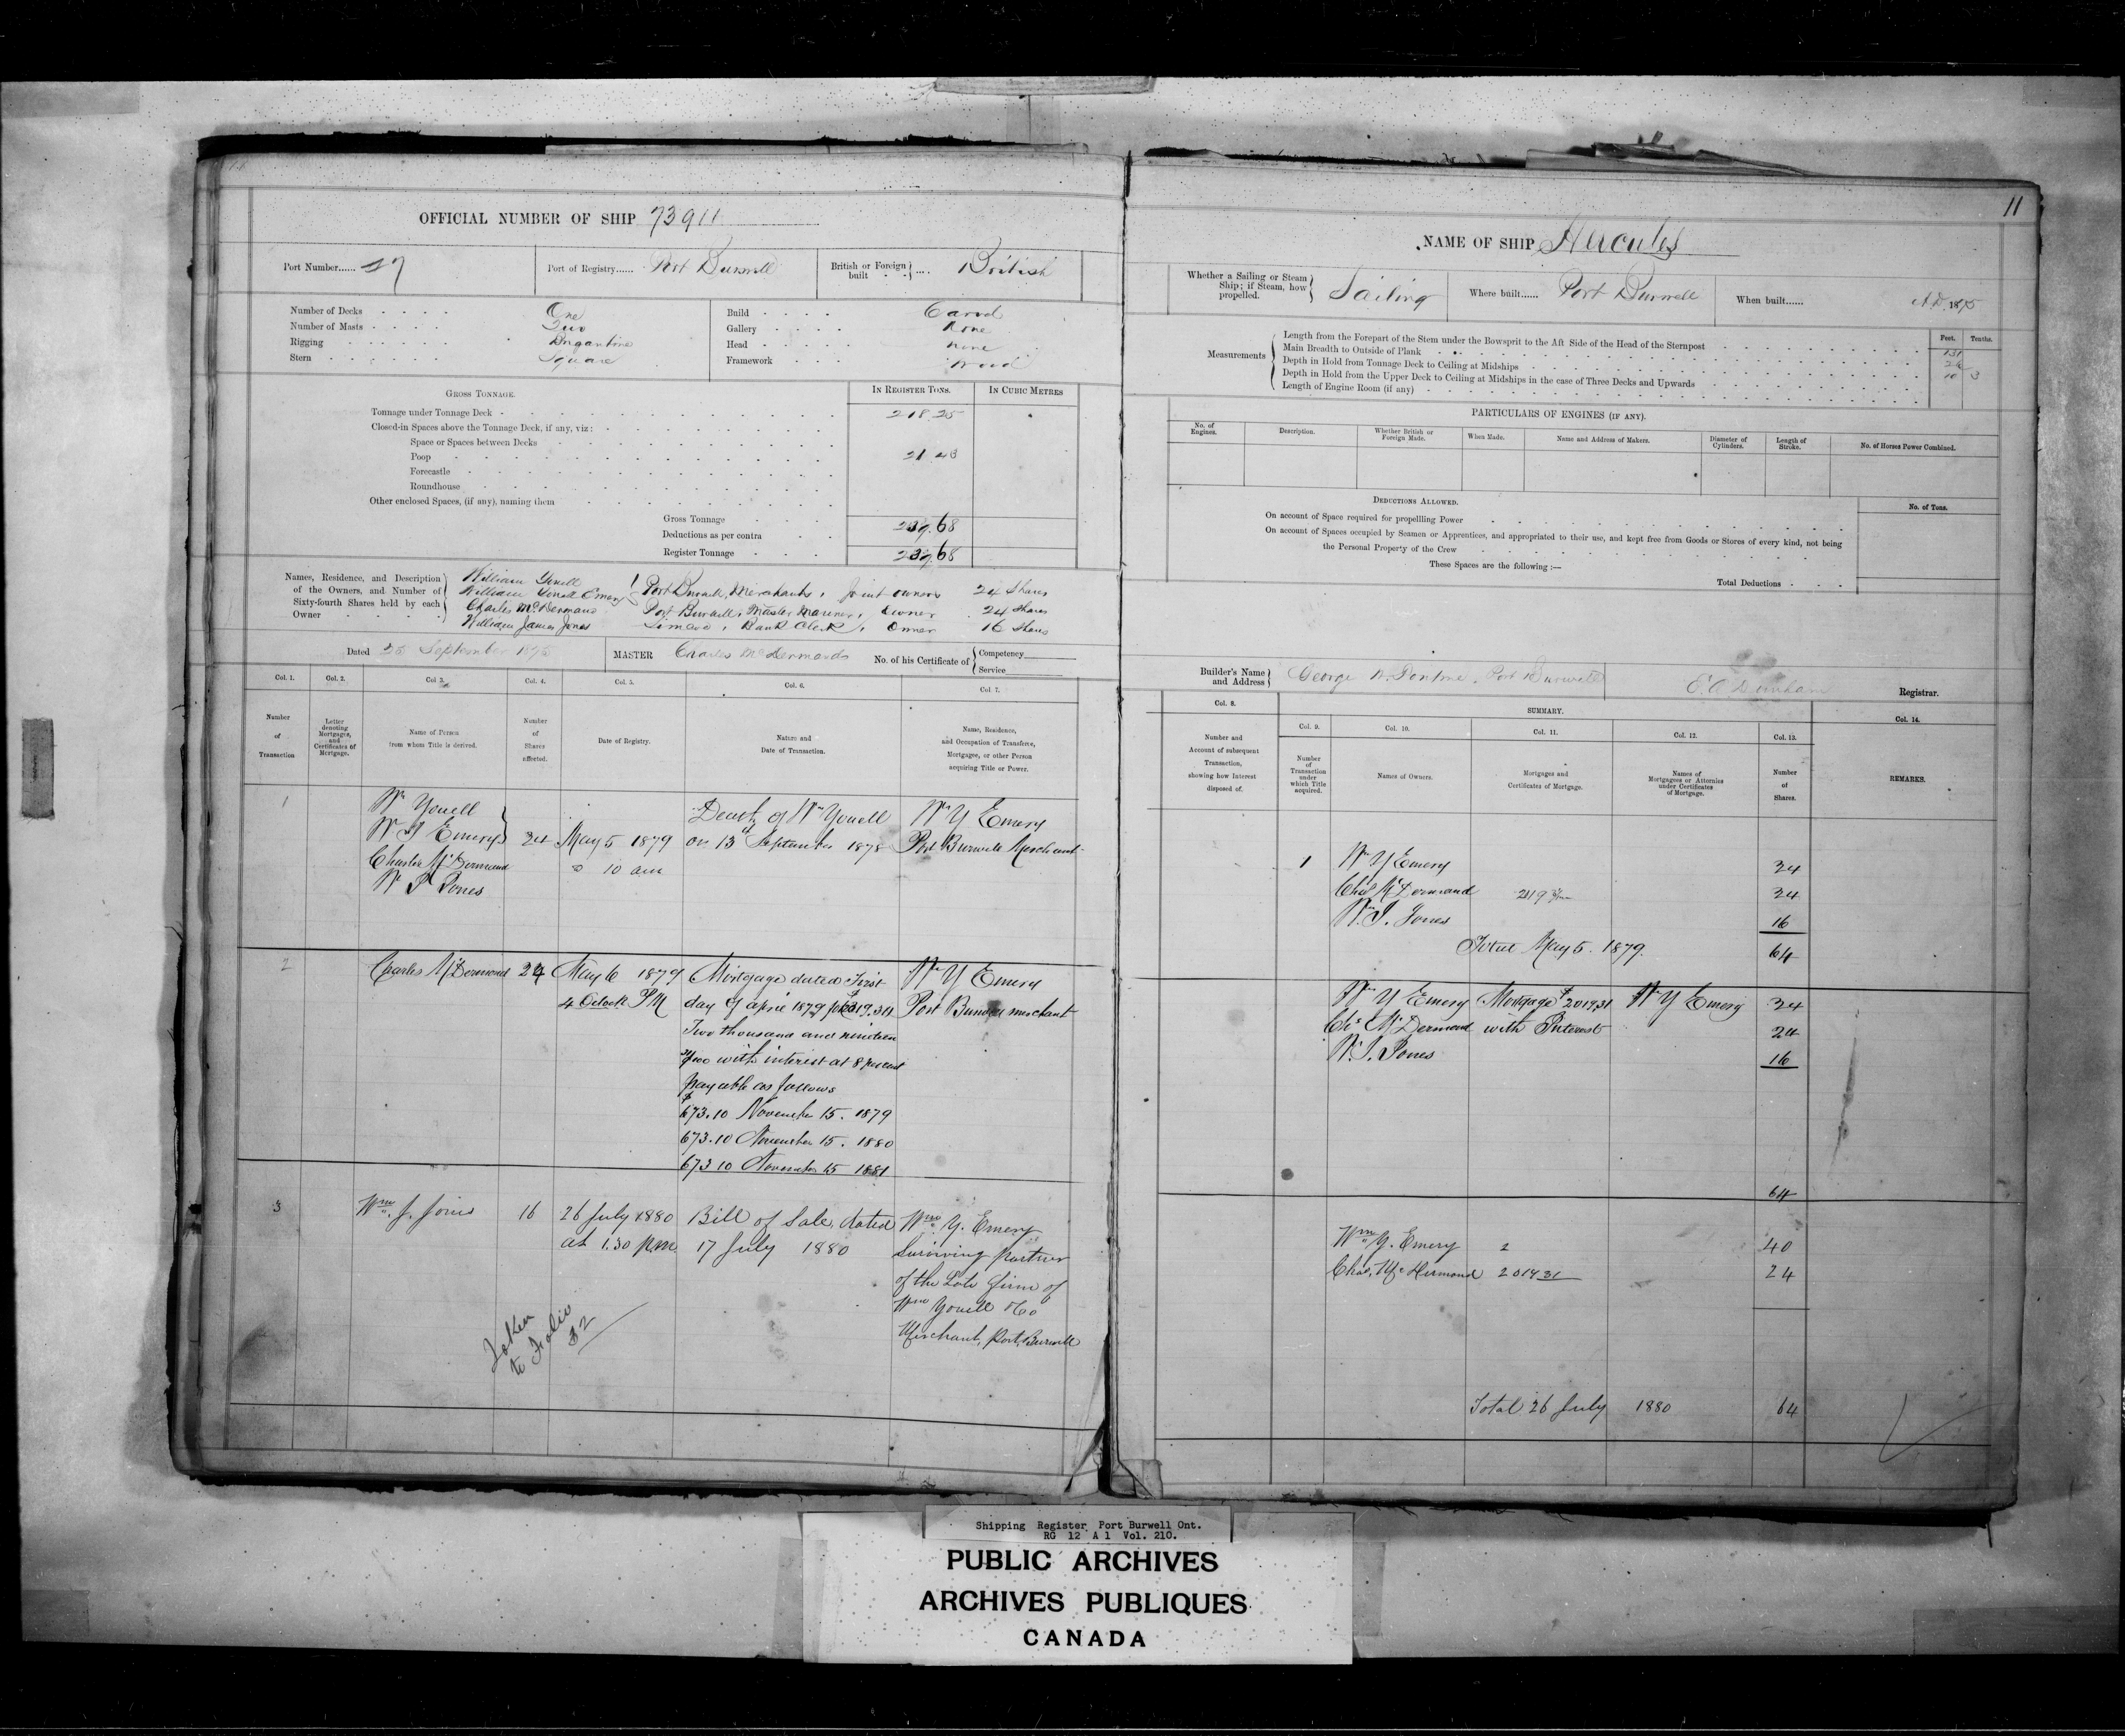 OFFICIAL NUMBER OF SHIP 73911
Port Number...... 27
Port of Registry...... Port Burwell
British or Foreign built .... British
Number of Decks One
Number of Masts Two
Rigging Brigantine
Stern Square
Build Carvel
Gallery None
Head None
Framework Wood
GROSS TONNAGE.
IN REGISTER TONS.
IN CUBIC METRES
Tonnage under Tonnage Deck 218.25
Closed-in Spaces above the Tonnage Deck, if any, viz:
Space or Spaces between Decks
Poop 21.43
Forecastle
Roundhouse
Other enclosed Spaces, (if any), naming them
Gross Tonnage 239.68
Deductions as per contra
Register Tonnage 239.68
Names, Residence, and Description of the Owners, and Number of Sixty-fourth Shares held by each Owner
William Youell
William Youell Emery } Port Burwell, Merchants, Joint owners 24 Shares
Charles McDermand Port Burwell, Master Mariner, Owner 24 Shares
William James Jones Simcoe, Bank Clerk, Owner 16 Shares
Dated 25 September 1875
MASTER Charles McDermand
No. of his Certificate of { Competency Service
Col. 1. Col. 2. Col 3. Col. 4. Col. 5. Col. 6. Col 7.
Number of Transaction
Letter denoting Mortgages, and Certificates of Mortgage.
Name of Person from whom Title is derived.
Number of Shares affected.
Date of Registry.
Nature and Date of Transaction.
Name, Residence, and Occupation of Transferee, Mortgagee, or other Person acquiring Title or Power.
1
Wm Youell
W Y Emery
Charles McDermand
W J Jones
24
May 5 1879
10 am
Death of Wm Youell
on 13th September 1878
Wm Y Emery
Port Burwell Merchant
2
Charles McDermand 24
May 6 1879
4 Oclock PM
Mortgage dated First
day of April 1879 for $2019.31
Two thousand and nineteen
31/100 with interest at 8 per cent
payable as follows
$673.10 November 15. 1879
673.10 November 15. 1880
673 10 November 15 1881
Wm Y Emery
Port Burwell merchant
3
Wm. J. Jones 16
26 July 1880
at 1.30 p.m.
Bill of Sale, dated
17 July 1880
Wm. Y. Emery
Surviving partner
of the Late firm of
Wm Youell & Co
Merchant, Port Burwell
Taken
to Folio
32
11
NAME OF SHIP Hercules
Whether a Sailing or Steam Ship; if Steam, how propelled. Sailing
Where built...... Port Burwell
When built...... A.D. 1875
Measurements
Feet. Tenths.
Length from the Forepart of the Stem under the Bowsprit to the Aft Side of the Head of the Sternpost 131
Main Breadth to Outside of Plank 26
Depth in Hold from Tonnage Deck to Ceiling at Midships 10 3
Depth in Hold from the Upper Deck to Ceiling at Midships in the case of Three Decks and Upwards
Length of Engine Room (if any)
PARTICULARS OF ENGINES (IF ANY).
No. of Engines.
Description.
Whether British or Foreign Made.
When Made.
Name and Address of Makers.
Diameter of Cylinders.
Length of Stroke.
No. of Horses Power Combined.
DEDUCTIONS ALLOWED.
No. of Tons.
On account of Space required for propellling Power
On account of Spaces occupied by Seamen or Apprentices, and appropriated to their use, and kept free from Goods or Stores of every kind, not being
the Personal Property of the Crew
These Spaces are the following :—
Total Deductions
Builder's Name and Address } George Port Burwell
Registrar.
Col. 8.
SUMMARY.
Col. 9. Col. 10. Col. 11. Col. 12. Col. 13. Col. 14.
Number and Account of subsequent Transaction, showing how Interest disposed of.
Number of Transaction under which Title acquired.
Names of Owners.
Mortgages and Certificates of Mortgage.
Names of Mortgagees or Attornies under Certificates of Mortgage.
Number of Shares.
REMARKS.
1 Wm Y Emery 24
Chas McDermand 24
Wm J. Jones 16
Total May 5. 1879. 64
Wm Y Emery Mortgage $2019.31 Wm Y Emery 24
Chs McDermand with Interest 24
W. J. Jones 16
64
Wm Y. Emery 2 40
Chas. McDermand 2019 31 24
Total 26 July 1880 64
Shipping Register Port Burwell Ont.
RG 12 A 1 Vol. 210.
PUBLIC ARCHIVES
ARCHIVES PUBLIQUES
CANADA